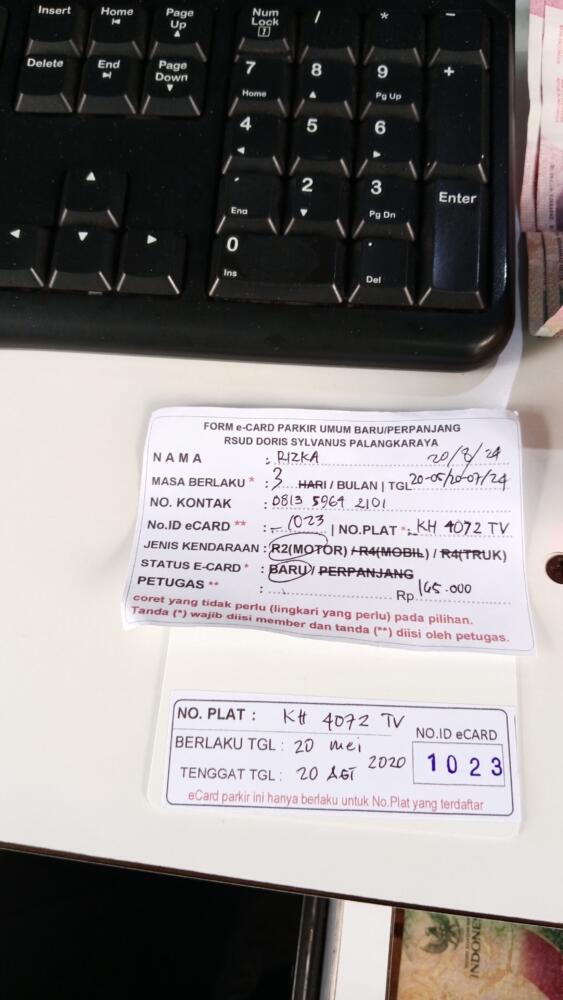 Insert Home Page Up Num Lock / * -
Delete End Page Down 7 Home 8 9 Pg Up +
4 5 6
End 2 3 Pg Dn Enter
0 Ins . Del
FORM e-CARD PARKIR UMUM BARU/PERPANJANG
RSUD DORIS SYLVANUS PALANGKARAYA
NAMA : RIZKA 20/8/24
MASA BERLAKU * : 3 HARI / BULAN | TGL 20-05/20-07/24
NO. KONTAK : 0813 5964 2101
No.ID eCARD ** : 1023 | NO.PLAT *: KH 4072 TV
JENIS KENDARAAN : R2(MOTOR) / R4(MOBIL) / R4(TRUK)
STATUS E-CARD * : BARU / PERPANJANG
PETUGAS ** : Rp 165.000
coret yang tidak perlu (lingkari yang perlu) pada pilihan.
Tanda (*) wajib diisi member dan tanda (**) diisi oleh petugas.
NO. PLAT : KH 4072 TV
BERLAKU TGL : 20 mei 2020
TENGGAT TGL : 20 AGT
NO.ID eCARD
1023
eCard parkir ini hanya berlaku untuk No.Plat yang terdaftar
INDONE